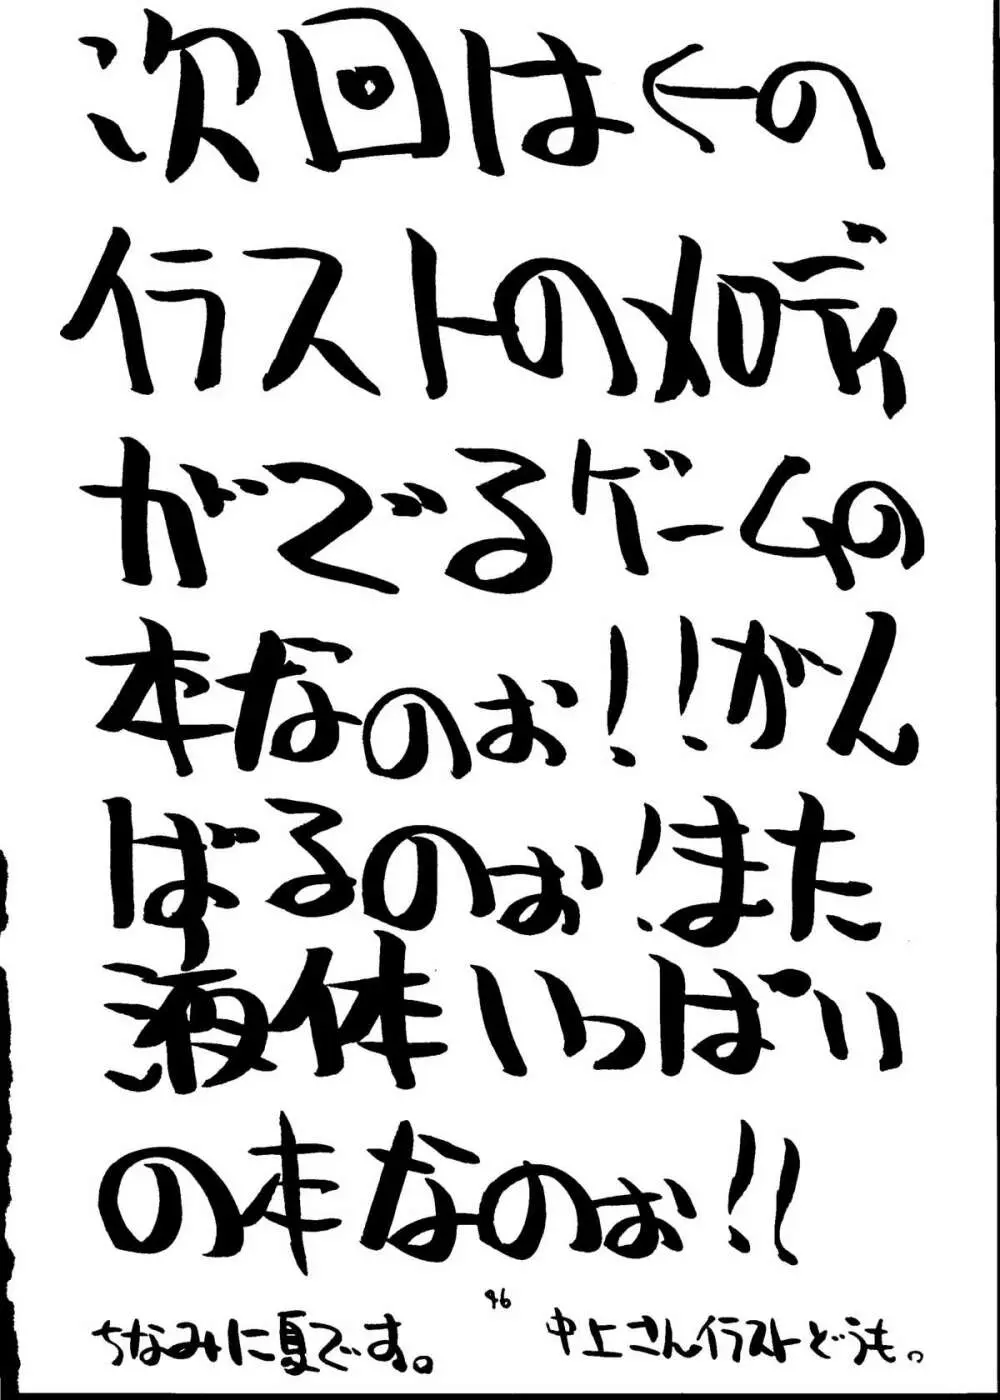 次回は←の
イラストの如㐮
がでるゲームの
本なのぉ!!がん
ばるのぉ!また
液体いっぱい
の本なのぉ!!
46
ちなみに夏です。
中上さんイラストどうも。